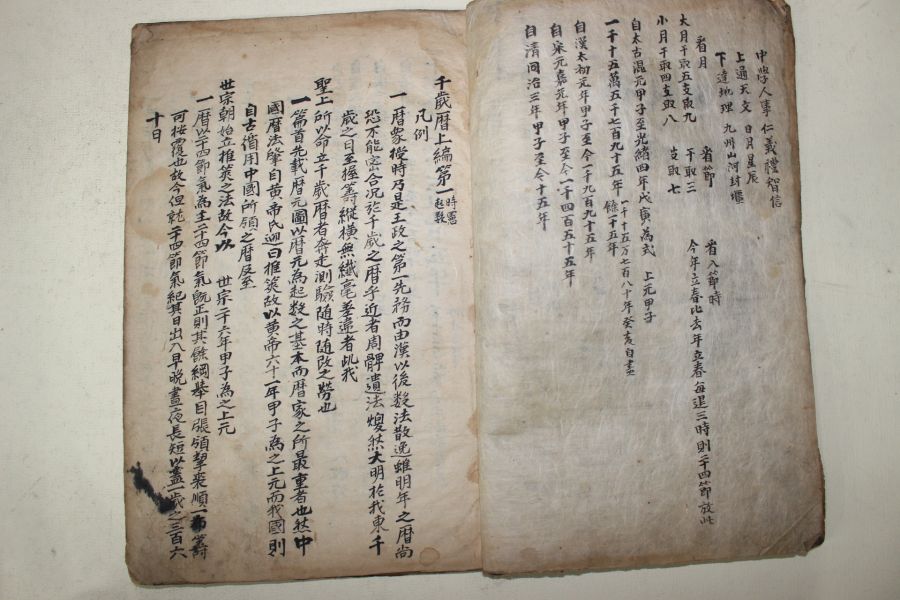 中學人事 仁義禮智信
上通天文 日月星辰
下達地理 九州山河封堰
省月 省節 省八節時
大月干取五支取九 干取三 今年立春比去年立春每退三時則二十四節放此
小月干取四支取八 支取七
自太古混元甲子至光緒四年戊寅為式 上元甲子
一千十五萬五千七百九十五年 餘十五年 一千十五万七百八十年癸亥自晝
自漢太初元年甲子至今一千九百九十五年
自宋元嘉元年甲子至今一千四百五十五年
自清同治三年甲子至今十五年
千歲曆上編第一 時憲起數
凡例
一曆象授時乃是王政之第一先務而由漢以後數法散逸雖明年之曆尚
恐不能密合況於千歲之曆乎近者周髀遺法煥然大明於我東千
歲之日至握籌縱橫無纖毫差違者此我
聖上所以命立千歲曆者奔走測驗隨時隨改之勞也
一篇首先載曆元圖以曆元為起數之基本而曆家之所最重者也然中
國曆法肇自黃帝氏迎日推筴故以黃帝六十一年甲子為之上元而我國則
自古循用中國所頒之曆反至
世宗朝始立推筴之法故今以 世宗二十六年甲子為之上元
一曆以二十四節氣為主二十四節氣旣正則其餘綱擧目張領挈裘順一布籌
可按覆也故今但就二十四節氣紀其日出入早晚晝夜長短以盡一歲之三百六
十日